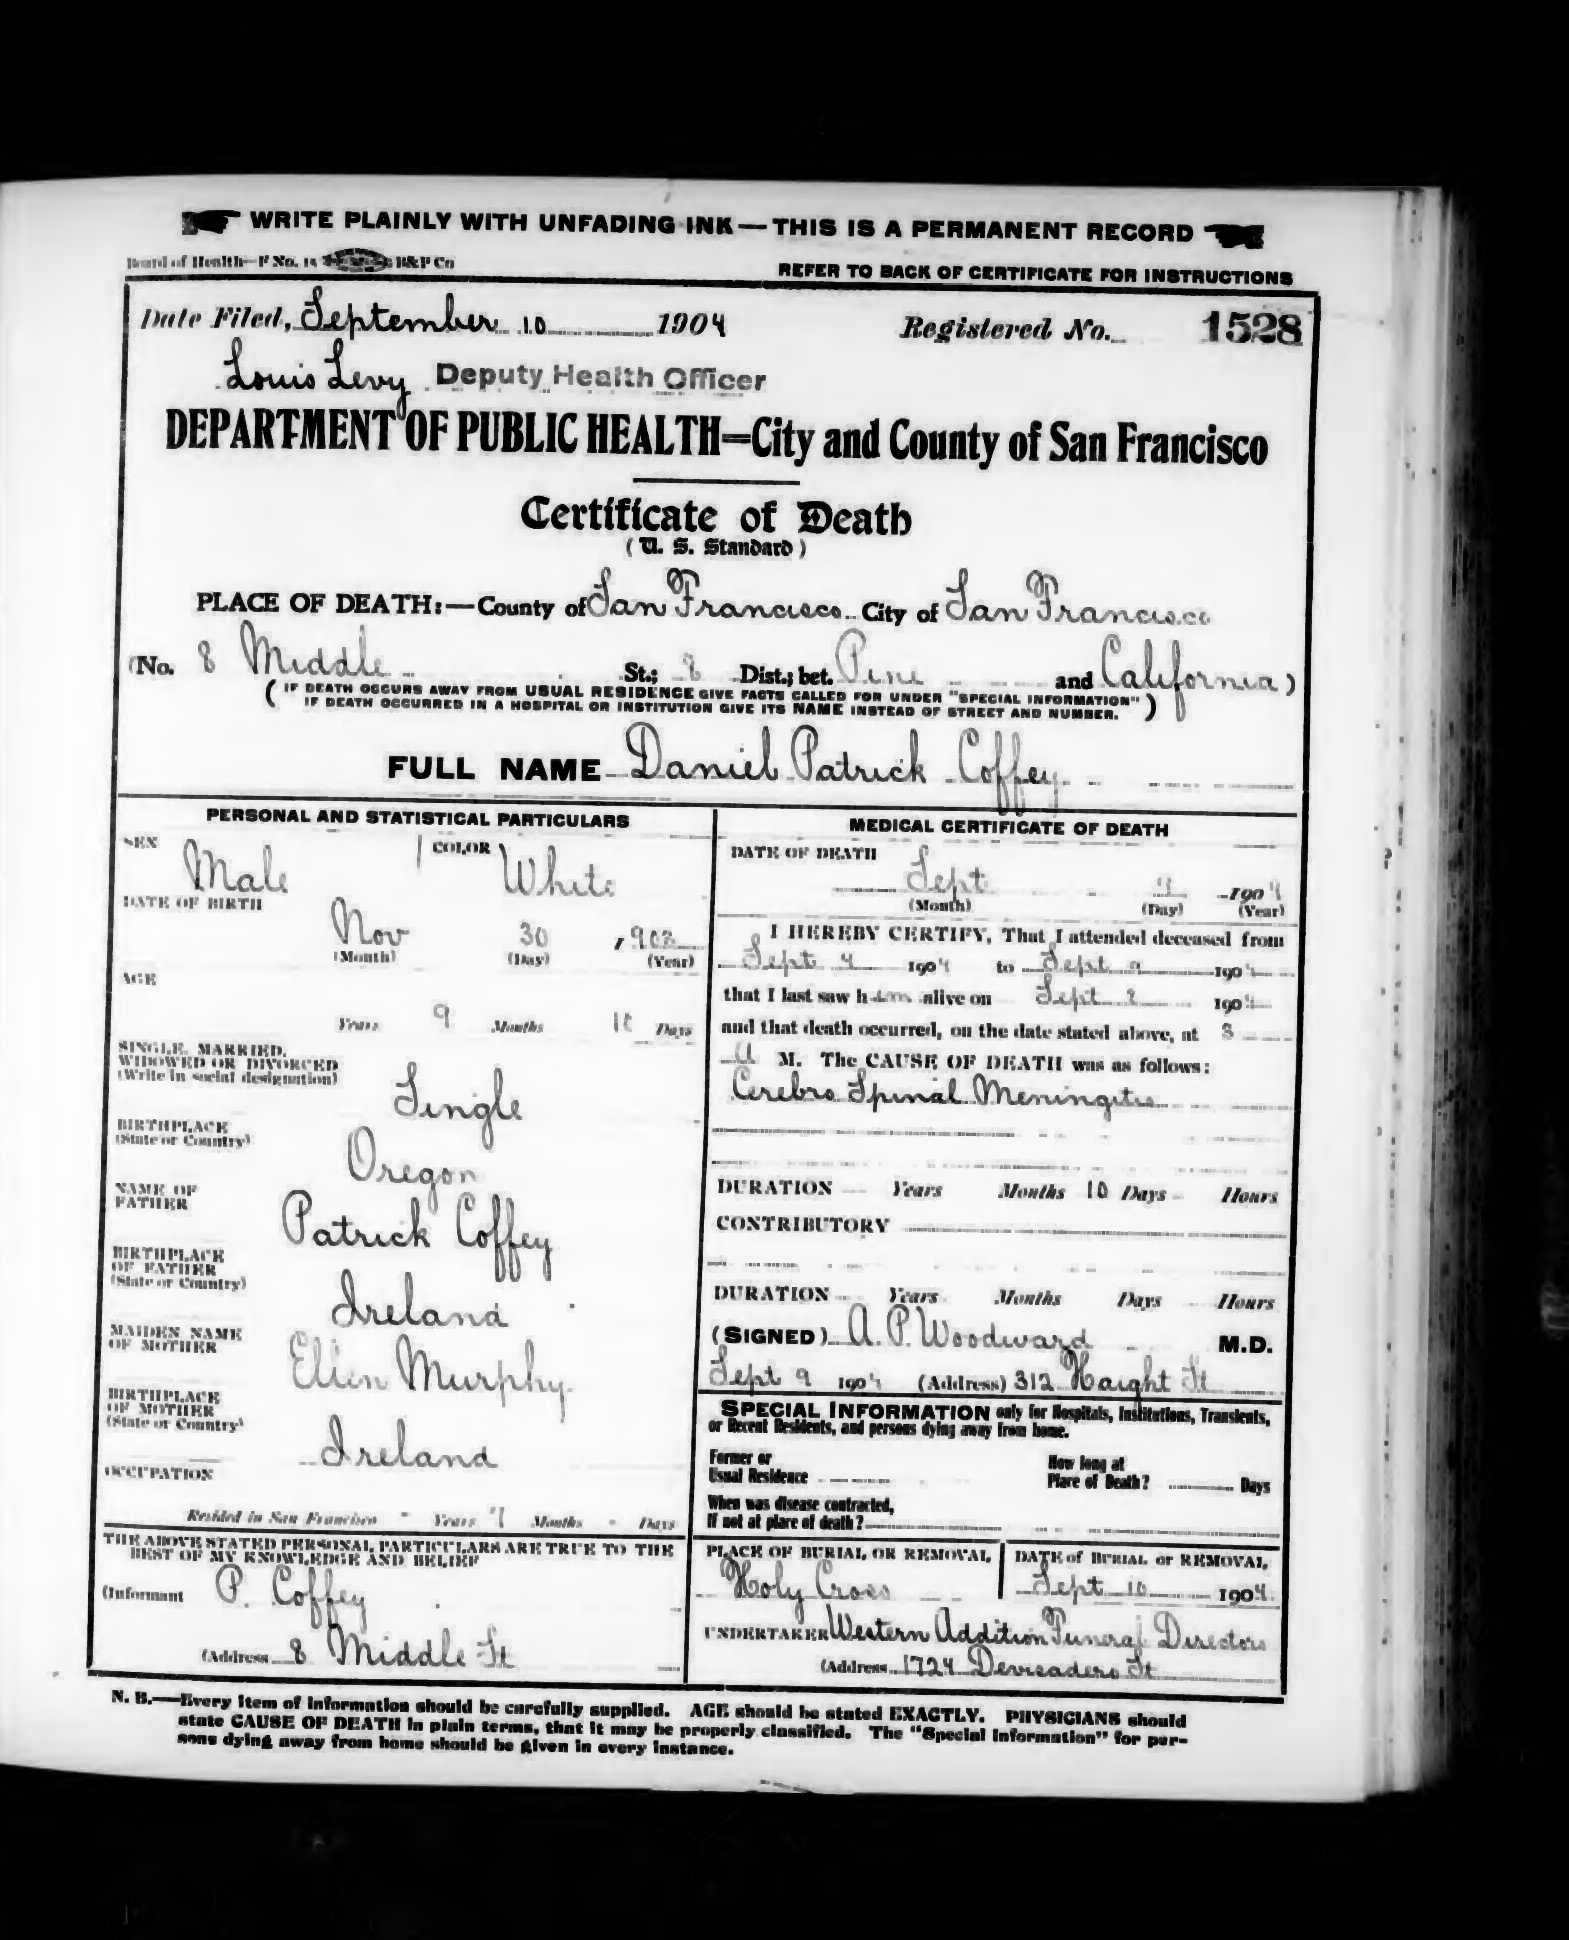 WRITE PLAINLY WITH UNFADING INK — THIS IS A PERMANENT RECORD
Board of Health—F No. 15 B&P Co
REFER TO BACK OF CERTIFICATE FOR INSTRUCTIONS
Date Filed, September 10 1904 Registered No. 1528
Louis Levy Deputy Health Officer
DEPARTMENT OF PUBLIC HEALTH=City and County of San Francisco
Certificate of Death
(U. S. Standard)
PLACE OF DEATH:—County of San Francisco City of San Francisco
(No. 8 Middle St.; 8 Dist.; bet. Pine and California)
(IF DEATH OCCURS AWAY FROM USUAL RESIDENCE GIVE FACTS CALLED FOR UNDER "SPECIAL INFORMATION"
IF DEATH OCCURRED IN A HOSPITAL OR INSTITUTION GIVE ITS NAME INSTEAD OF STREET AND NUMBER.)
FULL NAME Daniel Patrick Coffey
PERSONAL AND STATISTICAL PARTICULARS
SEX Male COLOR White
DATE OF BIRTH
Nov 30 1903
(Month) (Day) (Year)
AGE
Years 9 Months 10 Days
SINGLE, MARRIED,
WIDOWED OR DIVORCED
(Write in social designation)
Single
BIRTHPLACE
(State or Country)
Oregon
NAME OF
FATHER
Patrick Coffey
BIRTHPLACE
OF FATHER
(State or Country)
Ireland
MAIDEN NAME
OF MOTHER
Ellen Murphy
BIRTHPLACE
OF MOTHER
(State or Country)
Ireland
OCCUPATION
Resided in San Francisco - Years 7 Months - Days
THE ABOVE STATED PERSONAL PARTICULARS ARE TRUE TO THE
BEST OF MY KNOWLEDGE AND BELIEF
(Informant P. Coffey
(Address 8 Middle St
MEDICAL CERTIFICATE OF DEATH
DATE OF DEATH
Sept 9 1904
(Month) (Day) (Year)
I HEREBY CERTIFY, That I attended deceased from
Sept 4 1904 to Sept 9 1904
that I last saw him alive on Sept 8 1904
and that death occurred, on the date stated above, at 8
A M. The CAUSE OF DEATH was as follows:
Cerebro Spinal Meningitis
DURATION Years Months 10 Days Hours
CONTRIBUTORY
DURATION Years Months Days Hours
(SIGNED) A. P. Woodward M.D.
Sept 9 1904 (Address) 312 Haight St
SPECIAL INFORMATION only for Hospitals, Institutions, Transients,
or Recent Residents, and persons dying away from home.
Former or
Usual Residence
How long at
Place of Death? Days
When was disease contracted,
If not at place of death?
PLACE OF BURIAL OR REMOVAL
Holy Cross
DATE of BURIAL or REMOVAL
Sept 10 1904
UNDERTAKER Western Addition Funeral Directors
(Address 1724 Devisadero St
N. B.—Every item of information should be carefully supplied. AGE should be stated EXACTLY. PHYSICIANS should
state CAUSE OF DEATH in plain terms, that it may be properly classified. The "Special Information" for per-
sons dying away from home should be given in every instance.